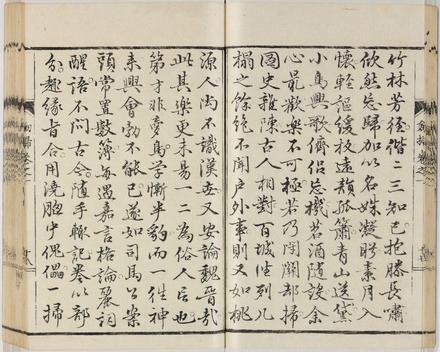 竹林芳徑偕二三知己抱膝長嘯
欣然忘歸加以名姝凝眸素月入
懷輕謳緩板遠籟孤簫青山送黛
小鳥興歌儕侶忘機茗酒隨設余
心最歡樂不可極若乃閉關却掃
圖史雜陳古人相對百城坐列几
榻之餘絕不聞户外事則又如桃
源人尚不識漢世又安論魏晉哉
此其樂更未易一二為俗人言也
第才非夢鳥學慚半豹而一往神
来興會勃不能已遂如司馬公案
頭常置數簿每遇嘉言格論麗詞
醒語不問古今隨手輒記卷以部
分趣緣旨合用澆胸中傀儡一掃